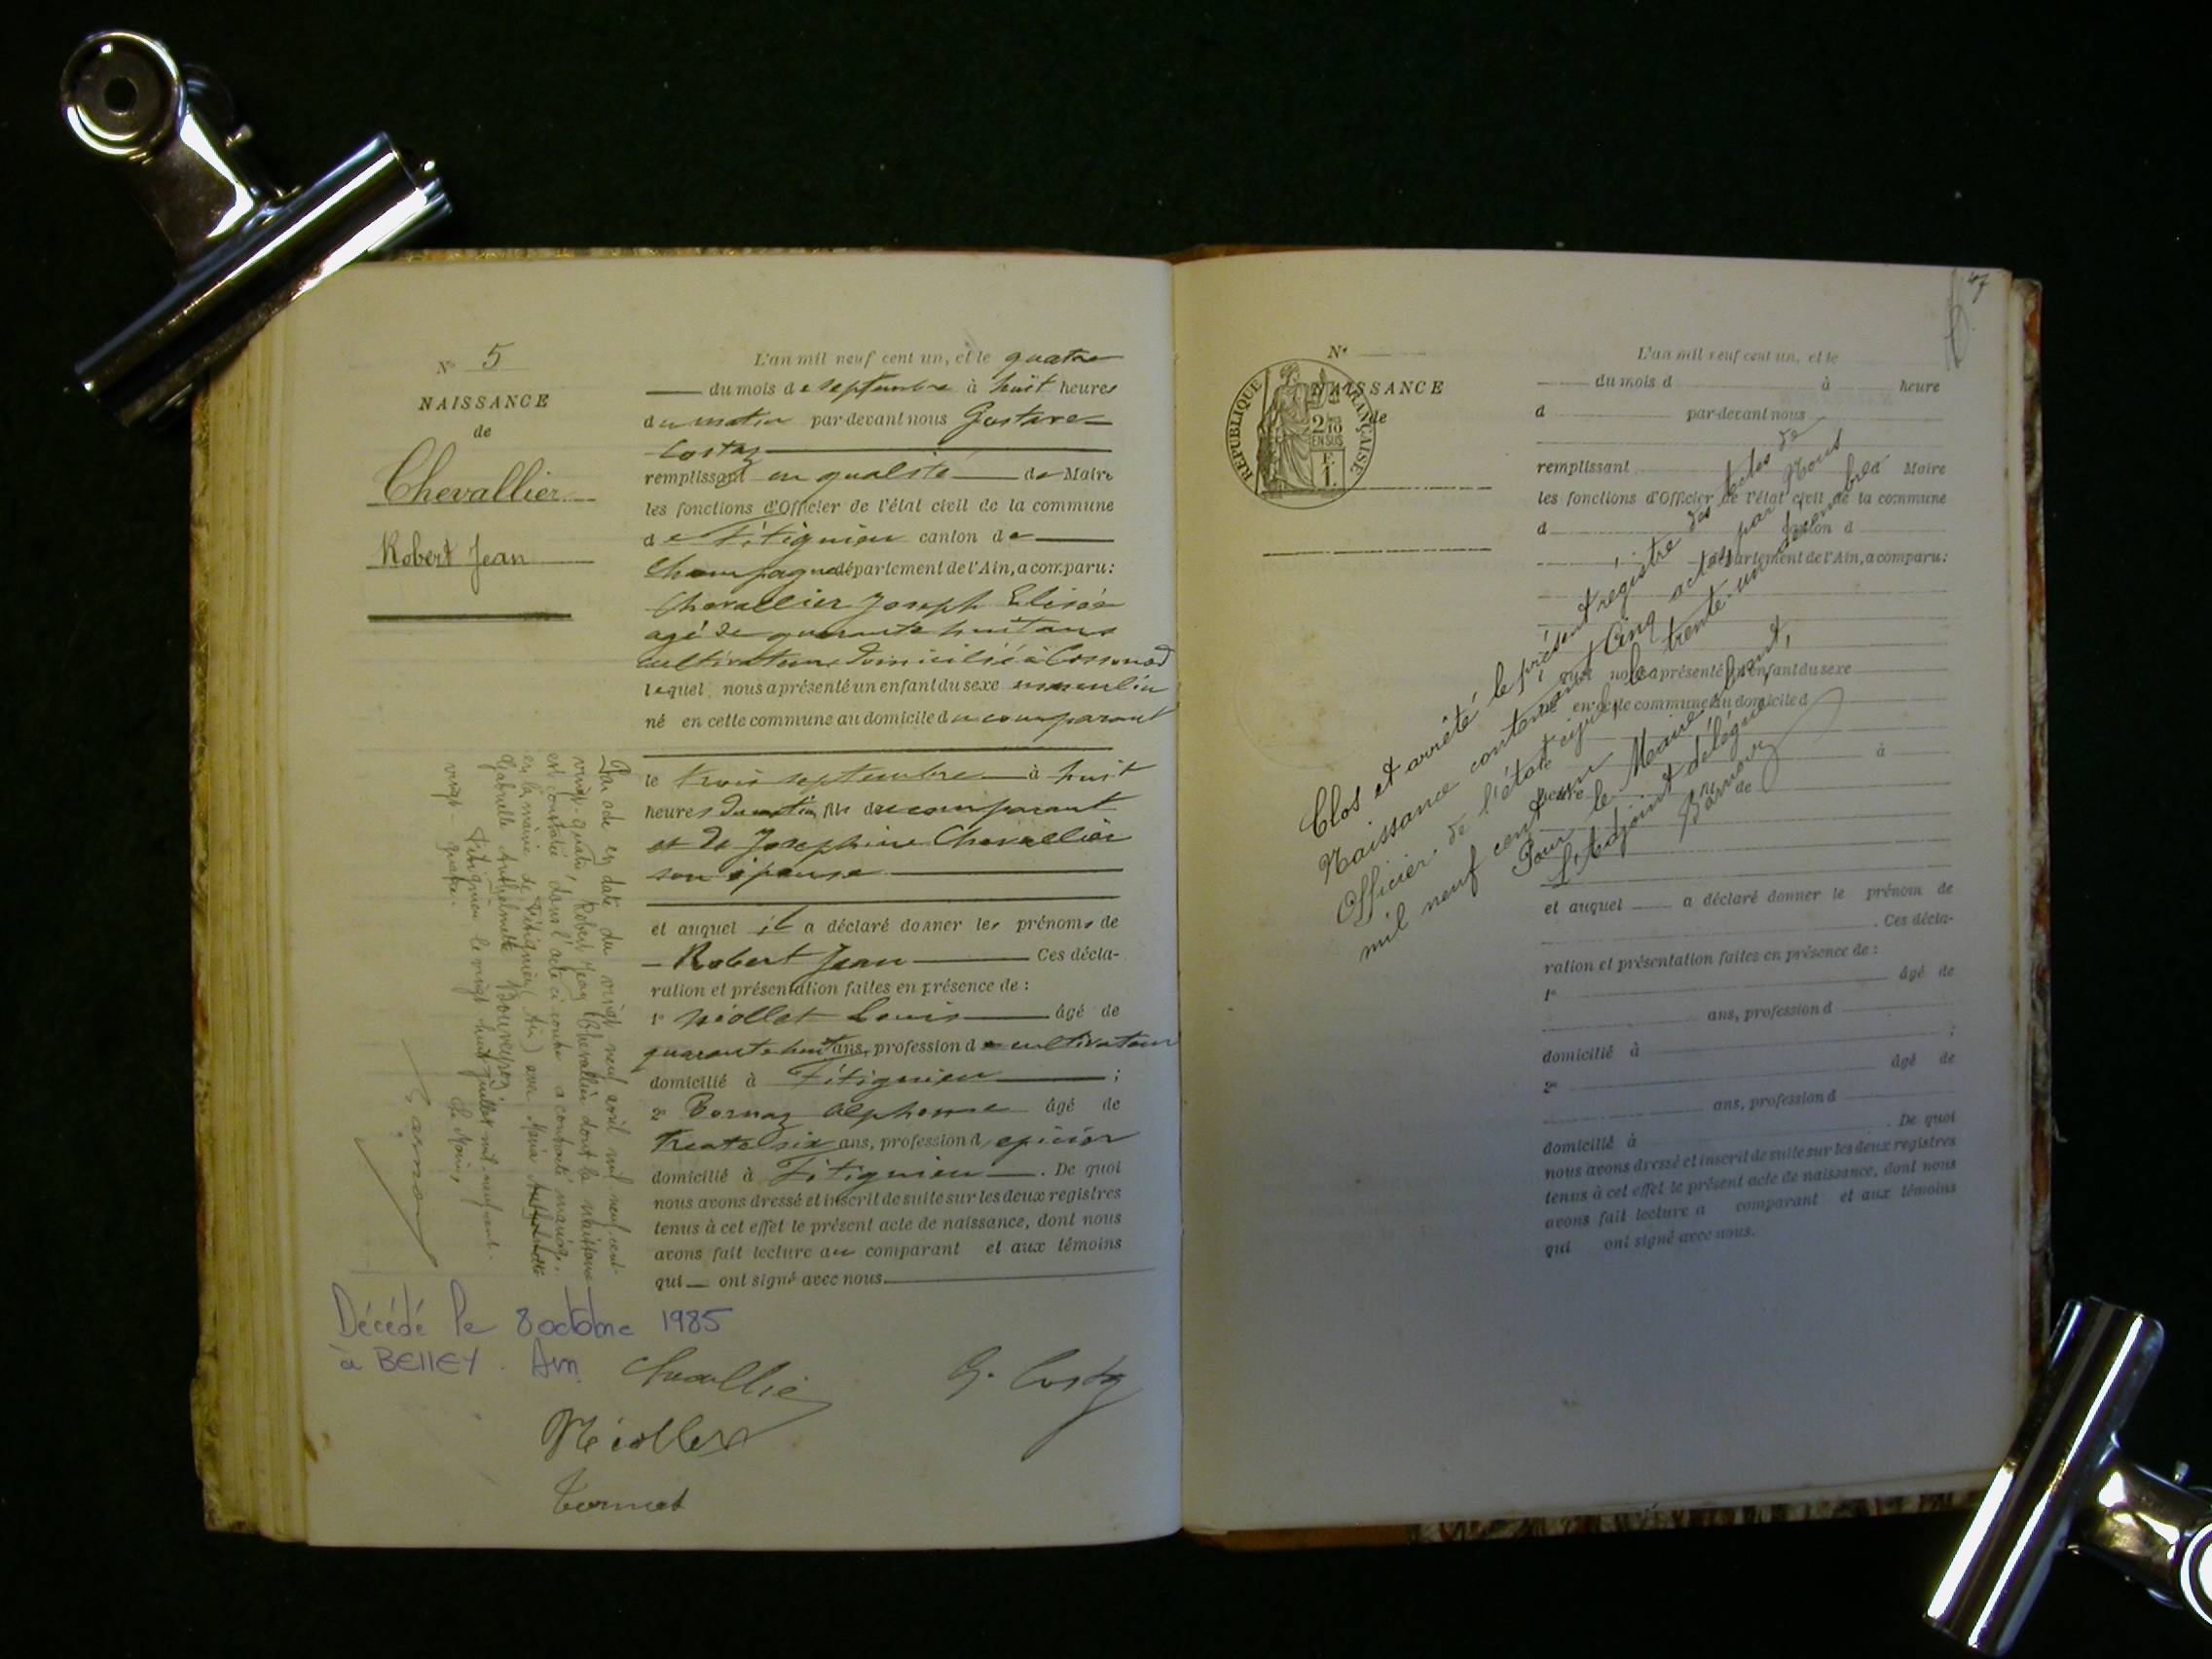 Nº 5
NAISSANCE
de
Chevallier
Robert Jean
L'an mil neuf cent un, et le quatre
du mois de septembre à huit heures
du matin par-devant nous Gustave
Costaz
remplissant en qualité de Maire
les fonctions d'Officier de l'état civil de la commune
de Fitignieu canton de
Champagne département de l'Ain, a comparu:
Chevallier Joseph Elisée
agé de quarante huit ans
cultivateur domicilié à Cossonod
lequel nous a présenté un enfant du sexe masculin
né en cette commune au domicile du comparant
le trois septembre à huit
heures du matin fils du comparant
et de Joséphine Chevallier
son épouse
et auquel il a déclaré donner les prénoms de
Robert Jean Ces décla-
ration et présentation faites en présence de :
1º Niollet Louis âgé de
quarante huit ans, profession de cultivateur
domicilié à Fitignieu ;
2º Alphonse âgé de
trente six ans, profession d épicier
domicilié à Fitignieu . De quoi
nous avons dressé et inscrit de suite sur les deux registres
tenus à cet effet le présent acte de naissance, dont nous
avons fait lecture au comparant et aux témoins
qui ont signé avec nous.
Par acte en date du vingt neuf avril mil neuf cent-
vingt quatre, Robert Jean Chevallier dont la naissance
est constatée dans l'acte ci contre a contracté mariage,
en la mairie de Fitignieu (Ain) avec Maria
Gabrielle Anthelmette
Fitignieu le vingt huit juillet mil neuf cent-
vingt-quatre. Le Maire,
Décédé le 8 octobre 1985
à BELLEY. Ain
Chevallier
G. Costaz
Niollet
47
Nº
NAISSANCE
de
REPUBLIQUE FRANÇAISE
2/10
EN SUS
F.
1.
L'an mil neuf cent un, et le
du mois d à heure
d par-devant nous
remplissant d Maire
les fonctions d'Officier de l'état civil de la commune
d canton d
département de l'Ain, a comparu:
nous a présenté un enfant du sexe
né en cette commune au domicile d
à
heure
de
et auquel a déclaré donner le prénom de
. Ces décla-
ration et présentation faites en présence de :
1º âgé de
ans, profession d
domicilié à ;
2º âgé de
ans, profession d
domicilié à . De quoi
nous avons dressé et inscrit de suite sur les deux registres
tenus à cet effet le présent acte de naissance, dont nous
avons fait lecture a comparant et aux témoins
qui ont signé avec nous.
Clos et arrêté le présent registre des actes de
Naissance contenant Cinq actes par Nous
Officier de l'état civil, le trente-un décembre
mil neuf cent un
Pour le Maire absent,
L'Adjoint délégué